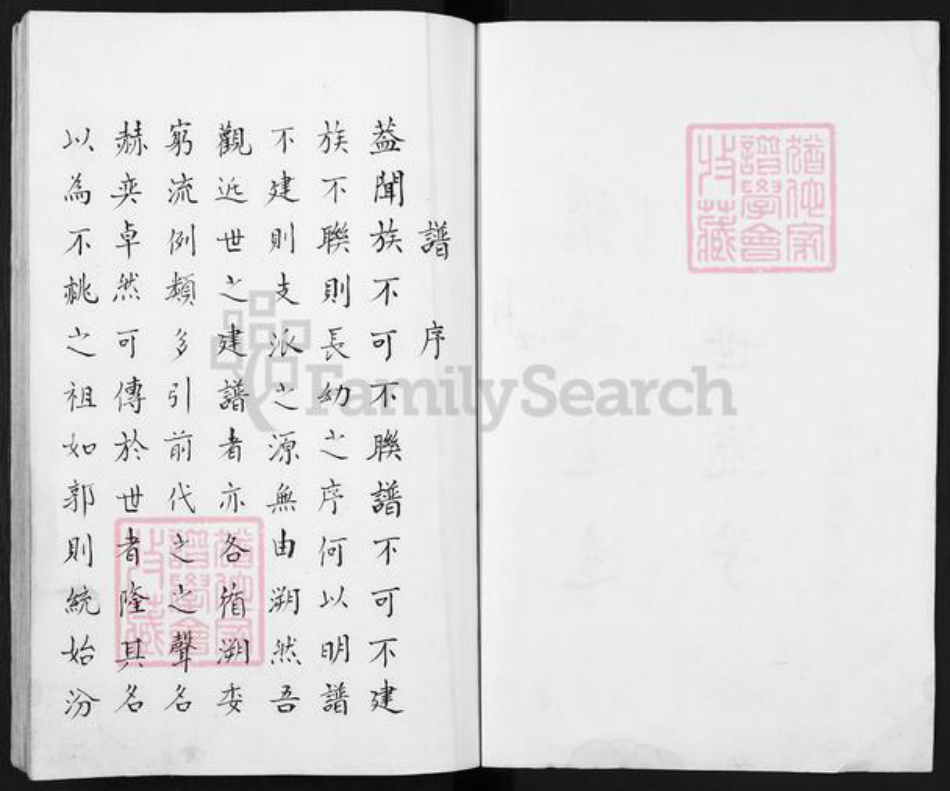 譜序
蓋聞族不可不聯譜不可不建
族不聯則長幼之序何以明譜
不建則支派之源無由溯然吾
觀近世之建譜者亦各循溯委
窮流例類多引前代之之聲名
赫奕卓然可傳於世者隆其名
以為不祧之祖如郭則統始汾
FamilySearch
譜學會
收藏